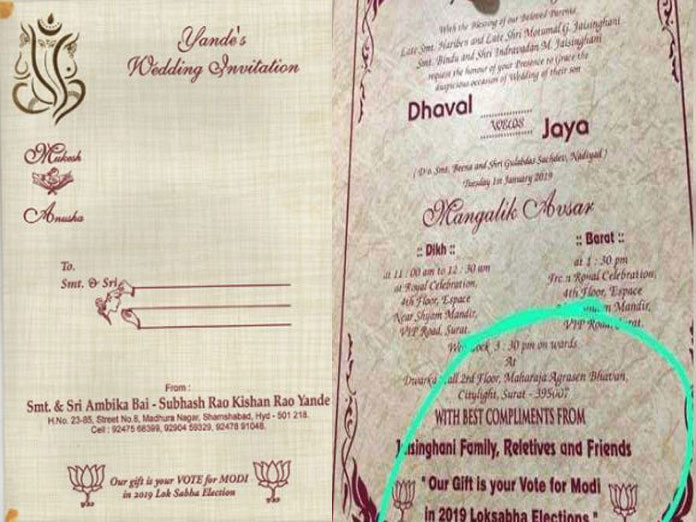 Yande's
Wedding Invitation
Mukesh
Anusha
To.
Smt. & Sri.
From :
Smt. & Sri Ambika Bai - Subhash Rao Kishan Rao Yande
H.No. 23-85, Street No.8, Madhura Nagar, Shamshabad, Hyd - 501 218.
Cell : 92475 66399, 92904 59329, 92478 91048.
Our gift is your VOTE for MODI
in 2019 Lok Sabha Election
With the Blessing of our Beloved Parents
Late Smt. Hariben and Late Shri Motumal G. Jaisinghani
Smt. Bindu and Shri Indravadan M. Jaisinghani
request the honour of your Presence to Grace the
auspicious occasion of Wedding of their son
Dhaval
Weds
Jaya
( D/o. Smt. Beena and Shri Gulabdas Sachdev, Nadiyad )
Tuesday 1st January 2019
Mangalik Avsar
:: Dikh ::
at 11 : 00 am to 12 : 30 am
at Royal Celebration,
4th Floor, Espace
Near Shyam Mandir,
VIP Road, Surat.
:: Barat ::
at 1 : 30 pm
Royal Celebration,
4th Floor, Espace
Mandir,
VIP Road,
3 : 30 pm on wards
At
2nd Floor, Maharaja Agrasen Bhavan,
Citylight, Surat - 395007
WITH BEST COMPLIMENTS FROM
Jaisinghani Family, Reletives and Friends
" Our Gift is your Vote for Modi
in 2019 Loksabha Elections "